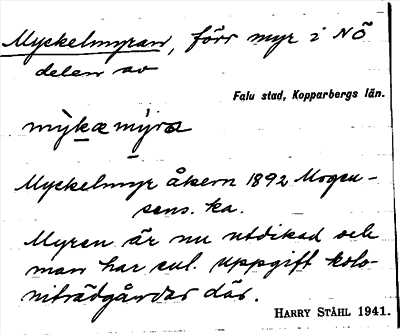 Myckelmyran, förr myr i NÖ
delen av
Falu stad, Kopparbergs län.
mỳkæ mýra
Myckelmyr åkern 1892 Mogen-
sens. ka.
Myren är nu utdikad och
man har enl. uppgift kolo-
niträdgårdar där.
HARRY STÅHL 1941.